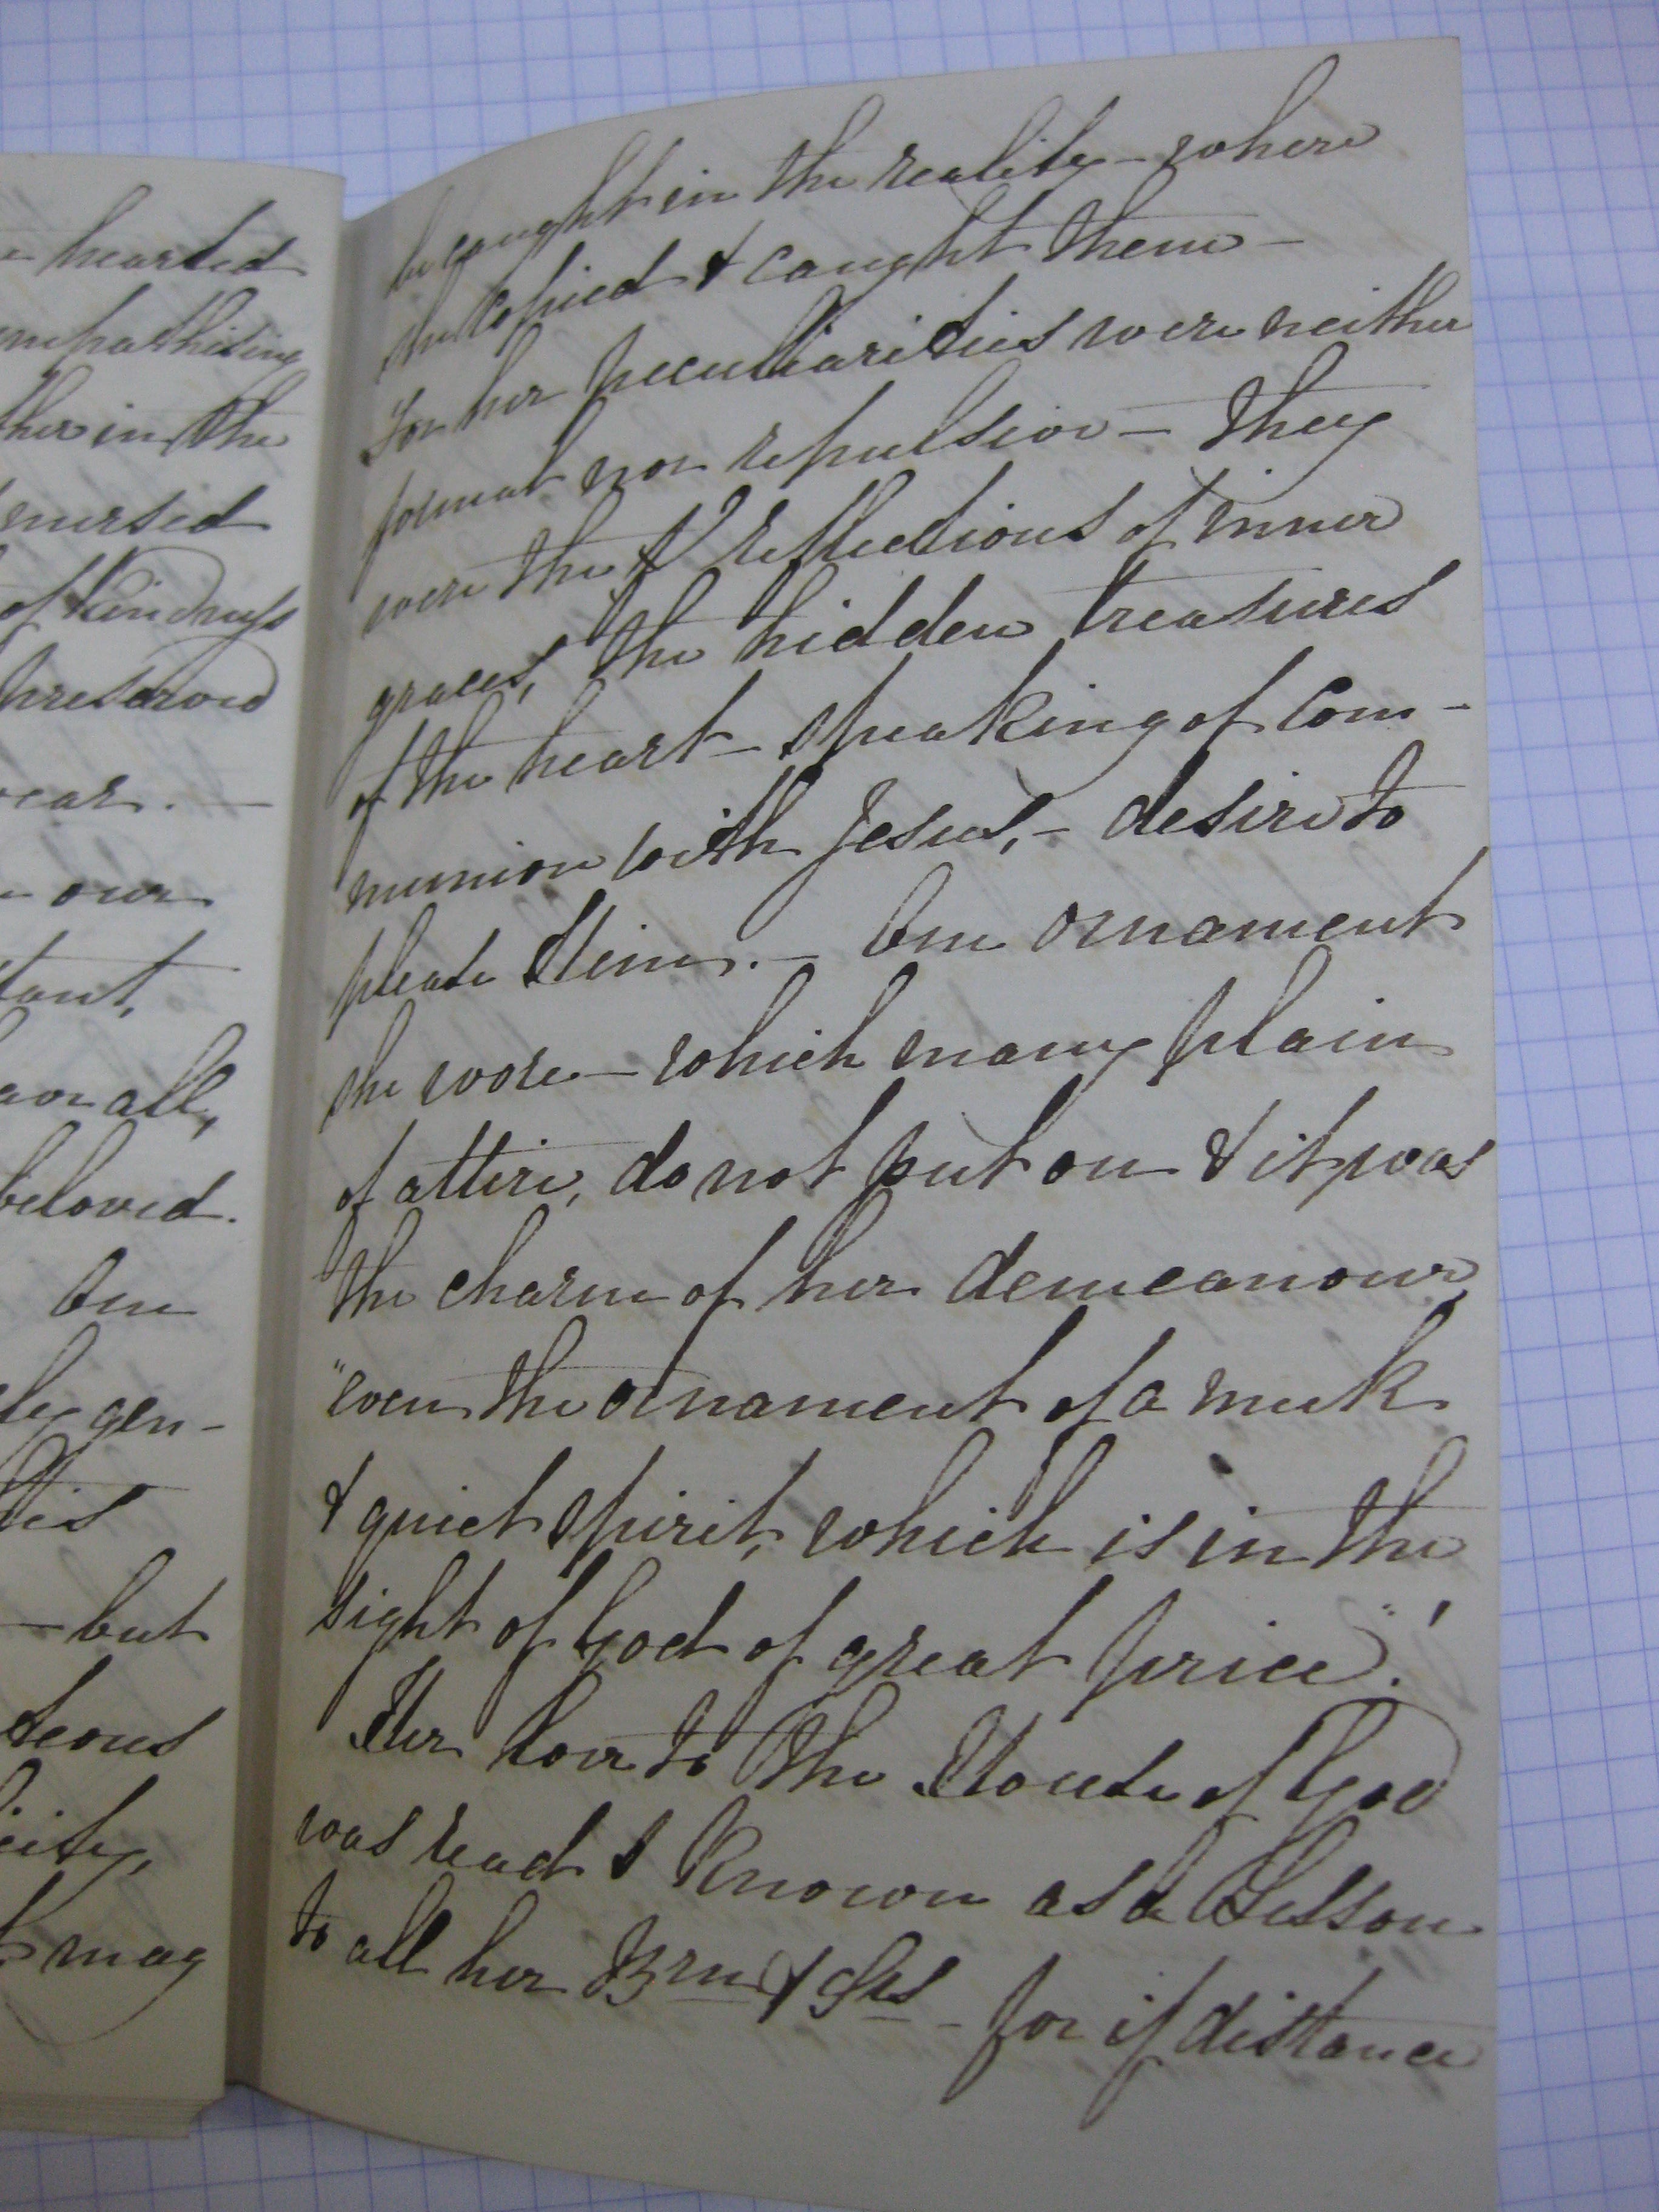 hearted
mpathising
ther in the
nursed
of kindness
preserved
year. —
— our
tant,
all,
beloved.
One
ly gen-
His
— but
teous
city,
may
be caught in the reality — where
she copied & caught them —
For her peculiarities were neither
formal nor repulsive — they
were the reflections of inner
graces, the hidden treasures
of the heart — speaking of Com-
munion with Jesus, — desire to
please Him. — One ornament
she wore — which many plain
of attire, do not put on & it was
the charm of her demeanour,
"even the ornament of a meek
& quiet spirit, which is in the
sight of God of great price."!
Her love to the House of God
was read & known as a Lesson
to all her Brn & Srs — for if distance